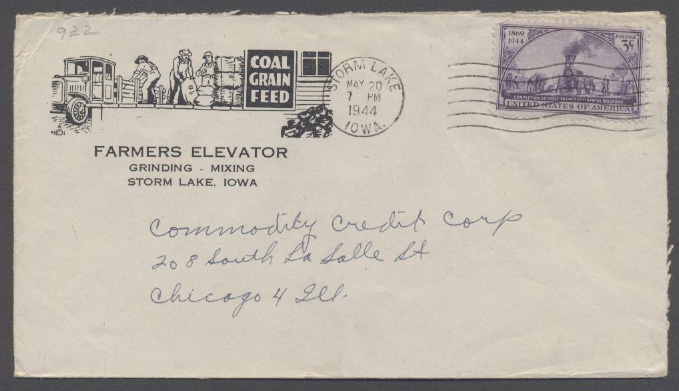 922
COAL
GRAIN
FEED
STORM LAKE
MAY 20
7 PM
1944
IOWA.
1869
1944
POSTAGE
3¢
COMPLETION OF FIRST TRANSCONTINENTAL RAILROAD
UNITED STATES OF AMERICA
FARMERS ELEVATOR
GRINDING - MIXING
STORM LAKE, IOWA
Commodity Credit Corp
208 South La Salle St
Chicago 4 Ill.